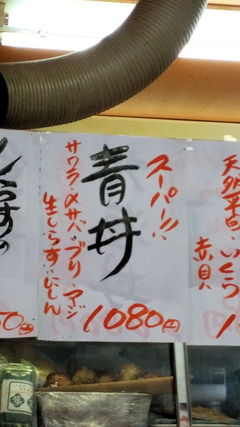 スーパー!!
青丼
サワラ・〆サバ・ブリ・アジ
生しらす・にしん
1080円
天然平目・いくら
赤貝